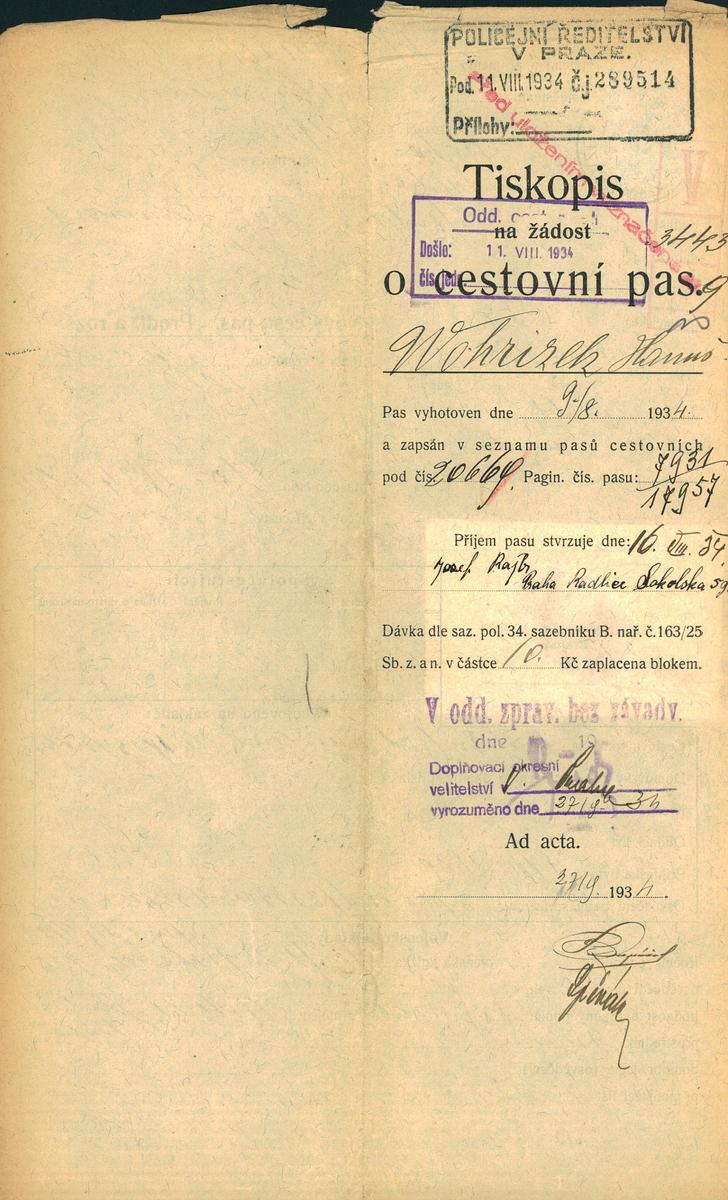 POLICEJNÍ ŘEDITELSTVÍ
V PRAZE.
Pod. 11.VIII.1934 č.j. 289514
Přílohy:
Tiskopis
Odd.
na žádost
3443
Došlo: 11. VIII. 1934
o cestovní pas.
9
Wohrizek Hanuš
Pas vyhotoven dne 9./8. 1934.
a zapsán v seznamu pasů cestovních
pod čís. 20669. Pagin. čís. pasu: 7931
17957
Příjem pasu stvrzuje dne: 16. VIII. 34.
Josef
Praha Radlice Sokolská 59
Dávka dle saz. pol. 34. sazebníku B. nař. č. 163/25
Sb. z. a n. v částce 10. Kč zaplacena blokem.
V odd. zprav. bez závady.
dne 19
Doplňovací okresní
velitelství v Praha
vyrozuměno dne 27/9 34
Ad acta.
27/9. 1934.